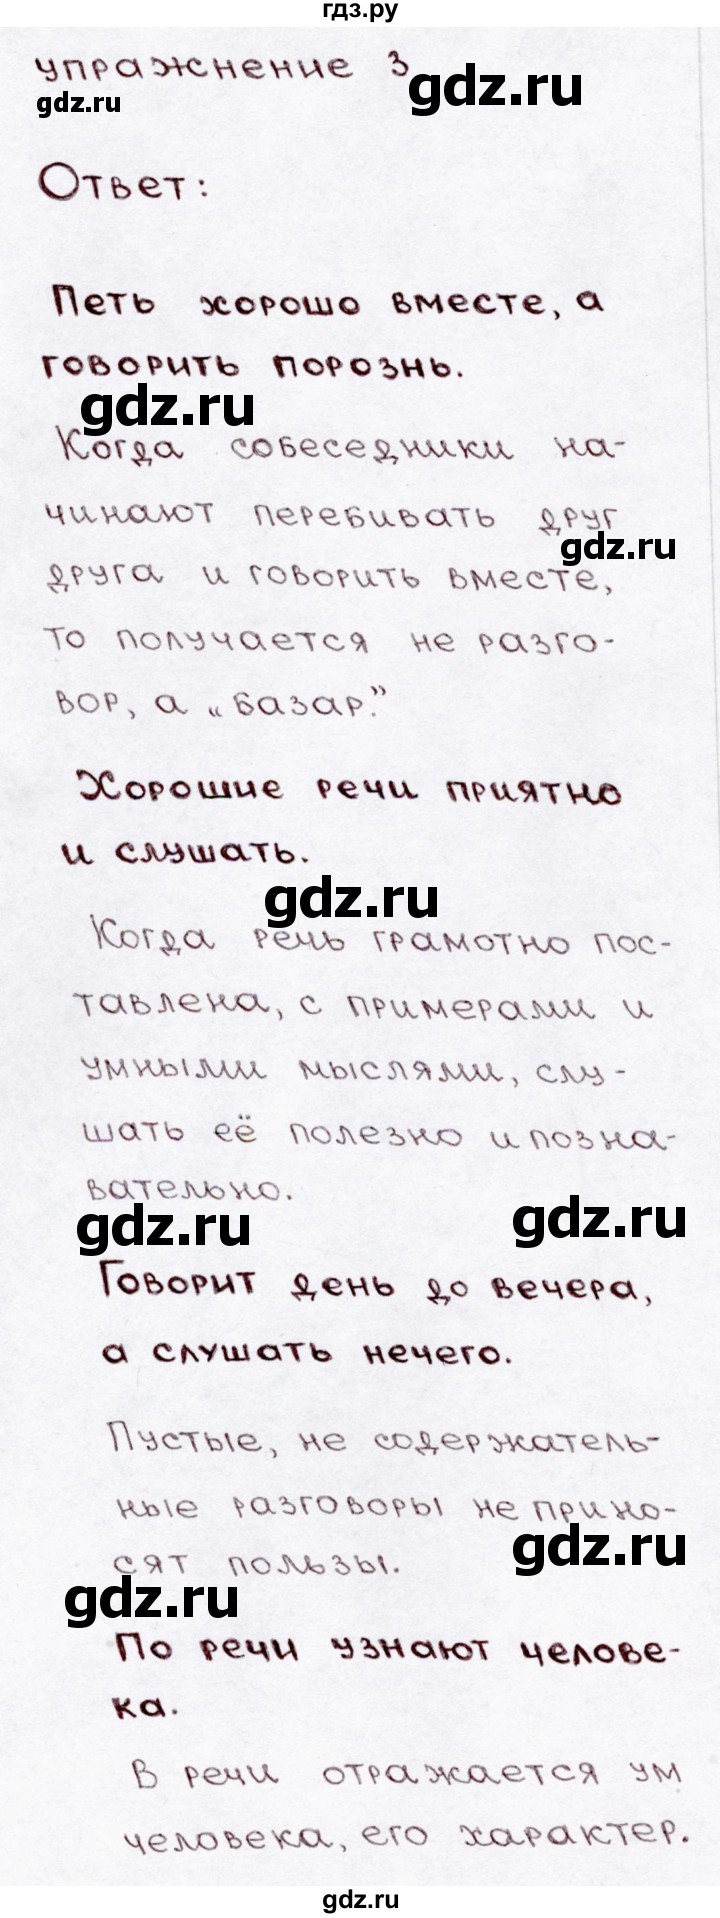 гдз.ру
упражнение 3
gdz.ru
gdz.ru
Ответ:
Петь хорошо вместе, а
говорить порознь.
gdz.ru
Когда собеседники на-
чинают перебивать друг
gdz.ru
друга и говорить вместе,
то получается не разго-
вор, а „базар."
Хорошие речи приятно
и слушать.
gdz.ru
Когда речь грамотно пос-
тавлена, с примерами и
умными мыслями, слу-
шать её полезно и позна-
вательно.
gdz.ru
gdz.ru
Говорит день до вечера,
а слушать нечего.
Пустые, не содержатель-
ные разговоры не прино-
gdz.ru
сят пользы.
gdz.ru
По речи узнают челове-
ка.
В речи отражается ум
человека, его характер.
gdz.ru